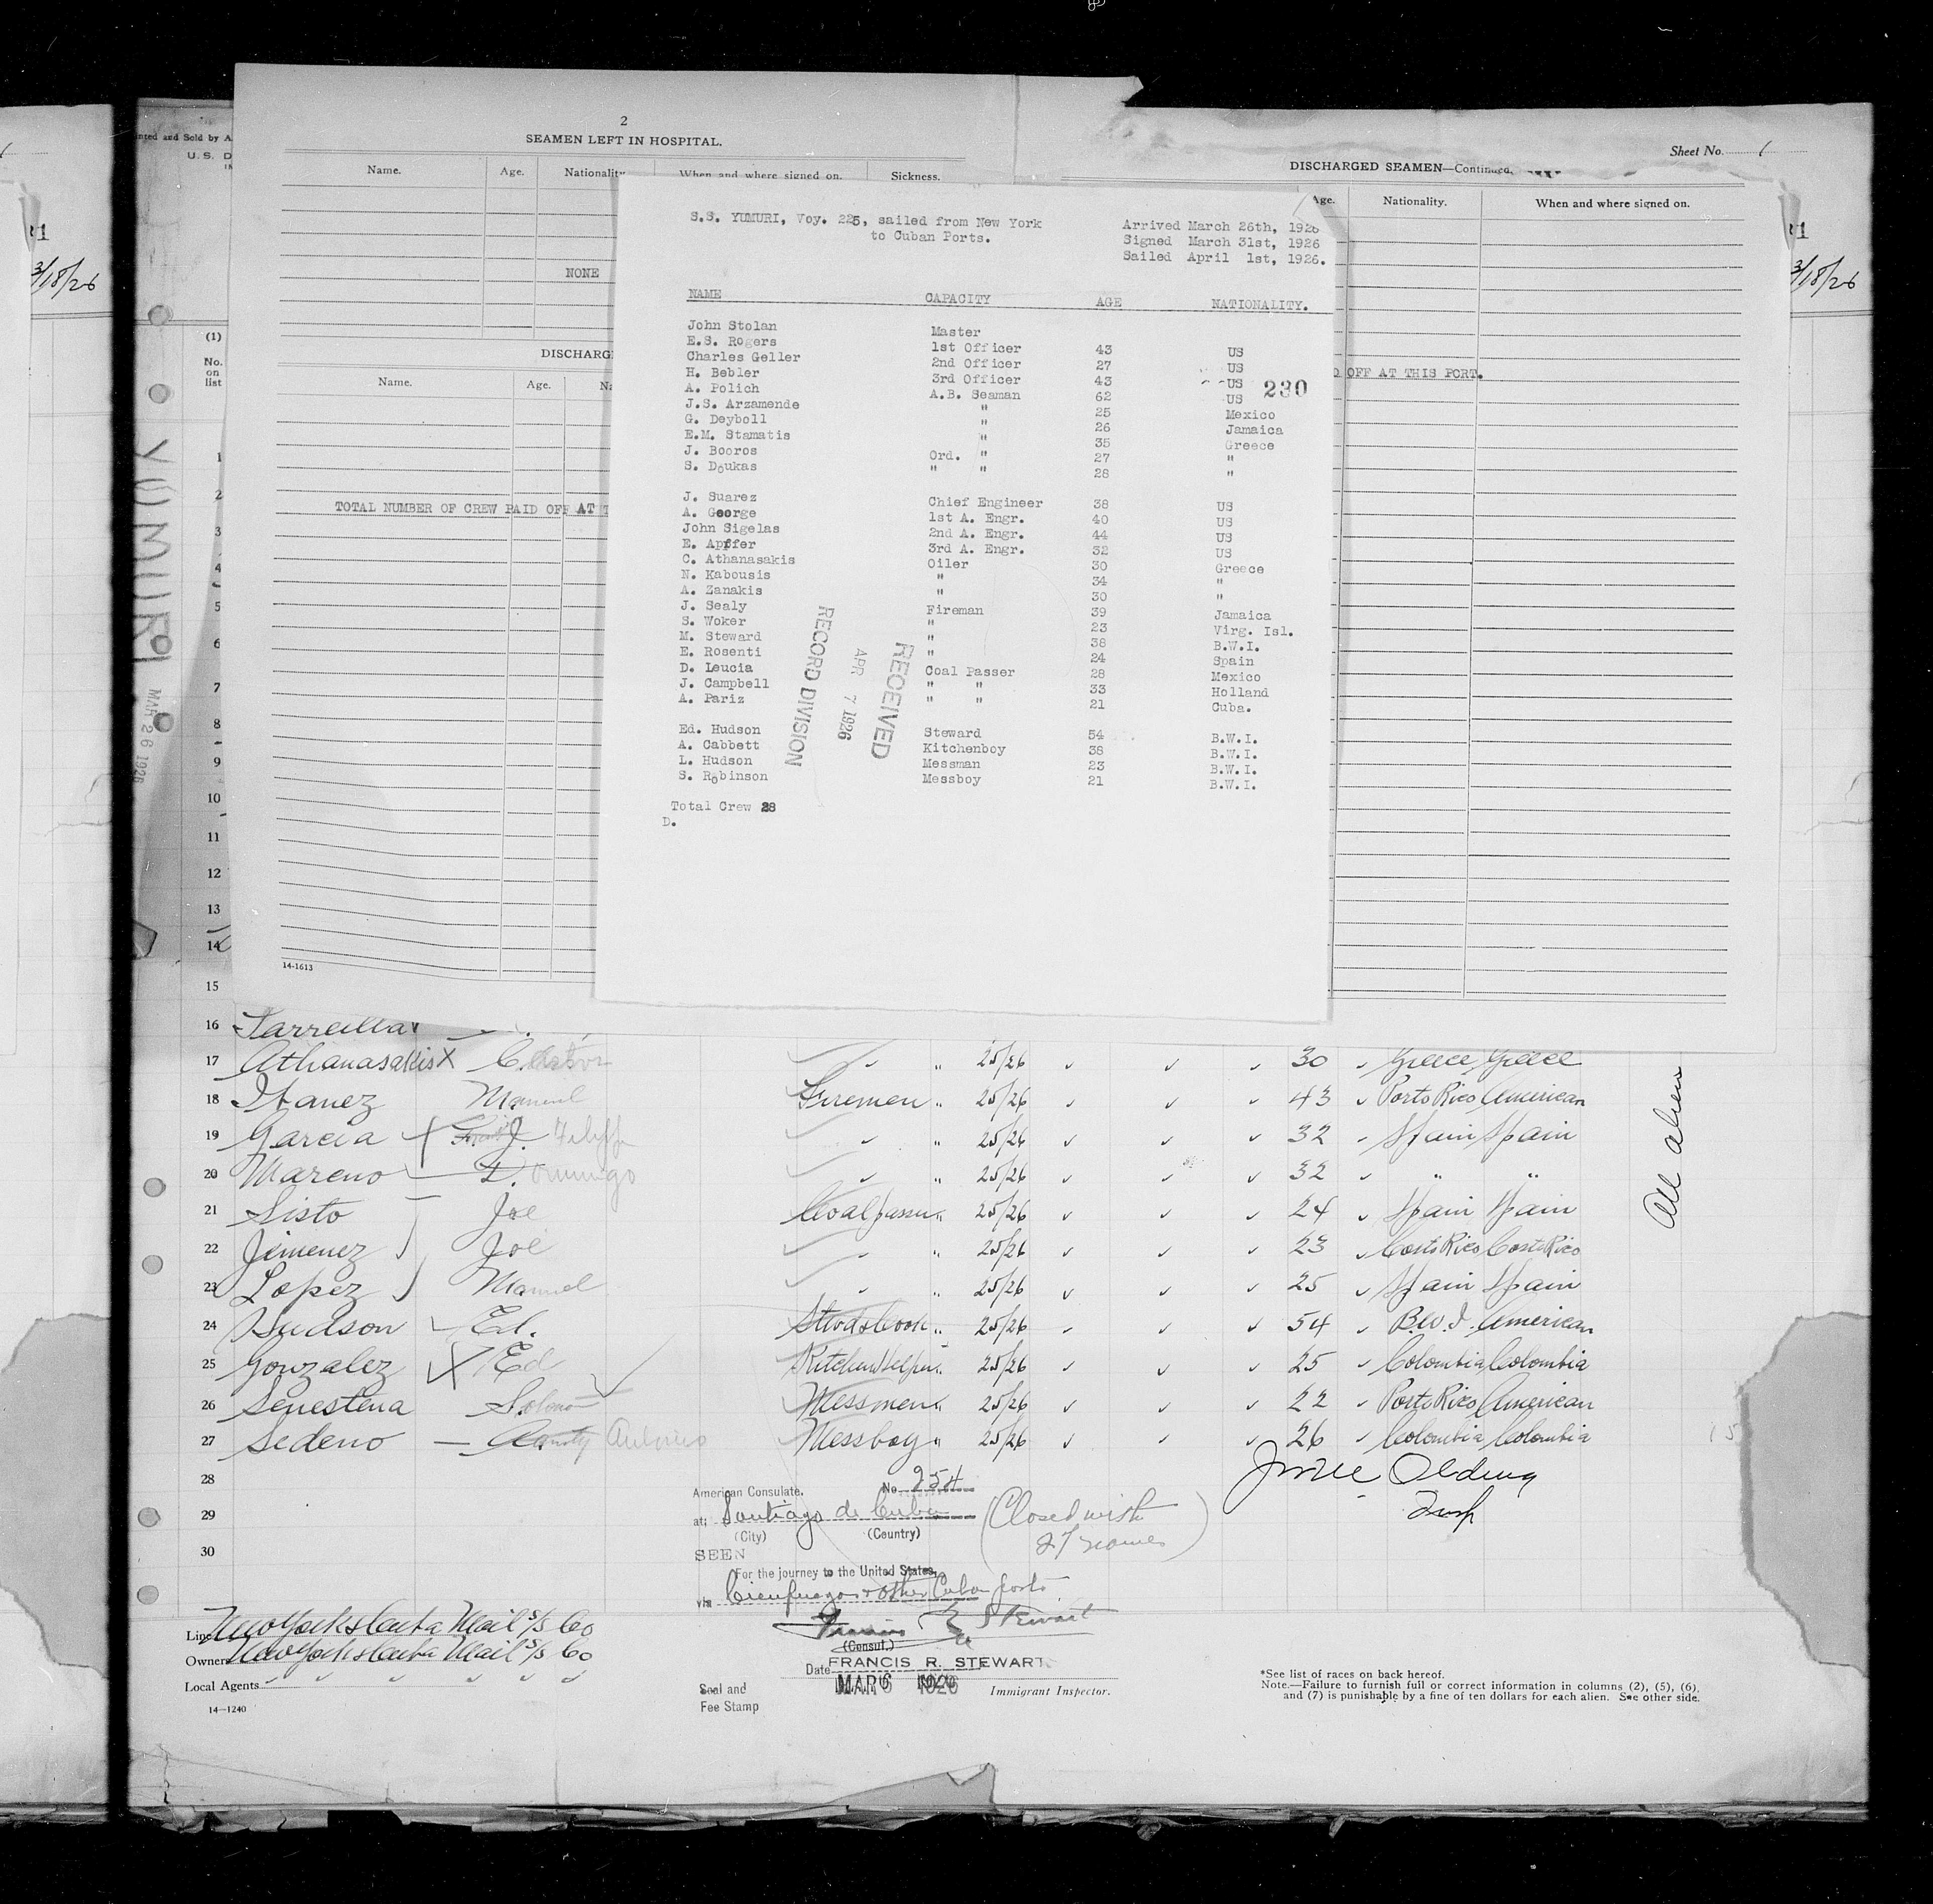 2
SEAMEN LEFT IN HOSPITAL.
Name. Age. Nationality When and where signed on. Sickness.
NONE
Name. Age.
TOTAL NUMBER OF CREW PAID OFF AT
14-1613
Sheet No. 1
DISCHARGED SEAMEN—Continued.
Age. Nationality. When and where signed on.
OFF AT THIS PORT.
3/18/26
3/18/26
S.S. YUMURI, Voy. 225, sailed from New York
to Cuban Ports.
Arrived March 26th, 1926
Signed March 31st, 1926
Sailed April 1st, 1926.
NAME CAPACITY AGE NATIONALITY.
John Stolan Master
E.S. Rogers 1st Officer 43 US
Charles Geller 2nd Officer 27 US
H. Bebler 3rd Officer 43 US
230
A. Polich A.B. Seaman 62 US
J.S. Arzamende " 25 Mexico
G. Deyboll " 26 Jamaica
E.M. Stamatis " 35 Greece
J. Booros Ord. " 27 "
S. Doukas " " 28 "
J. Suarez Chief Engineer 38 US
A. George 1st A. Engr. 40 US
John Sigelas 2nd A. Engr. 44 US
E. Apffer 3rd A. Engr. 32 US
C. Athanasakis Oiler 30 Greece
N. Kabousis " 34 "
A. Zanakis " 30 "
J. Sealy Fireman 39 Jamaica
S. Woker " 23 Virg. Isl.
M. Steward " 38 B.W.I.
E. Rosenti " 24 Spain
D. Leucia Coal Passer 28 Mexico
J. Campbell " " 33 Holland
A. Pariz " " 21 Cuba.
Ed. Hudson Steward 54 B.W.I.
A. Cabbett Kitchenboy 38 B.W.I.
L. Hudson Messman 23 B.W.I.
S. Robinson Messboy 21 B.W.I.
Total Crew 28
D.
RECEIVED
APR 7 1926
RECORD DIVISION
(1)
No.
on
list
YUMURI
MAR 26 1926
1
2
3
4
5
6
7
8
9
10
11
12
13
14
15
16
17 Athanasakis X C. " " 25/26 30 Greece Greece
18 Ibanez Manuel Firemen " 25/26 43 Porto Rico American
19 Garcia J. " " 25/26 32 Spain Spain
20 Mareno D. omingo " 25/26 32 " "
21 Sisto Joe Coalpasser " 25/26 24 Spain Spain
22 Jimenez Joe " " 25/26 23 Costa Rico Costa Rico
23 Lopez Manuel " " 25/26 25 Spain Spain
24 Hudson Ed. Stwd & Cook " 25/26 54 B.W.I. American
25 Gonzalez X Ed Kitchen Helper " 25/26 25 Colombia Colombia
26 Senestena Messmen " 25/26 22 Porto Rico American
27 Sedeno Antonio Messboy " 25/26 26 Colombia Colombia
28
29
30
All aliens
Insp
American Consulate. No 254
at: Santiago de Cuba
(City) (Country)
(Closed with
27 names)
SEEN
For the journey to the United States,
via Cienfuegos & other Cuban ports
Francis R Stewart
(Consul.)
FRANCIS R. STEWART
Date
Seal and
Fee Stamp
Immigrant Inspector.
Line New York & Cuba Mail S/S Co
Owners New York & Cuba Mail S/S Co
Local Agents " " " " " "
14—1240
*See list of races on back hereof.
Note.—Failure to furnish full or correct information in columns (2), (5), (6),
and (7) is punishable by a fine of ten dollars for each alien. See other side.